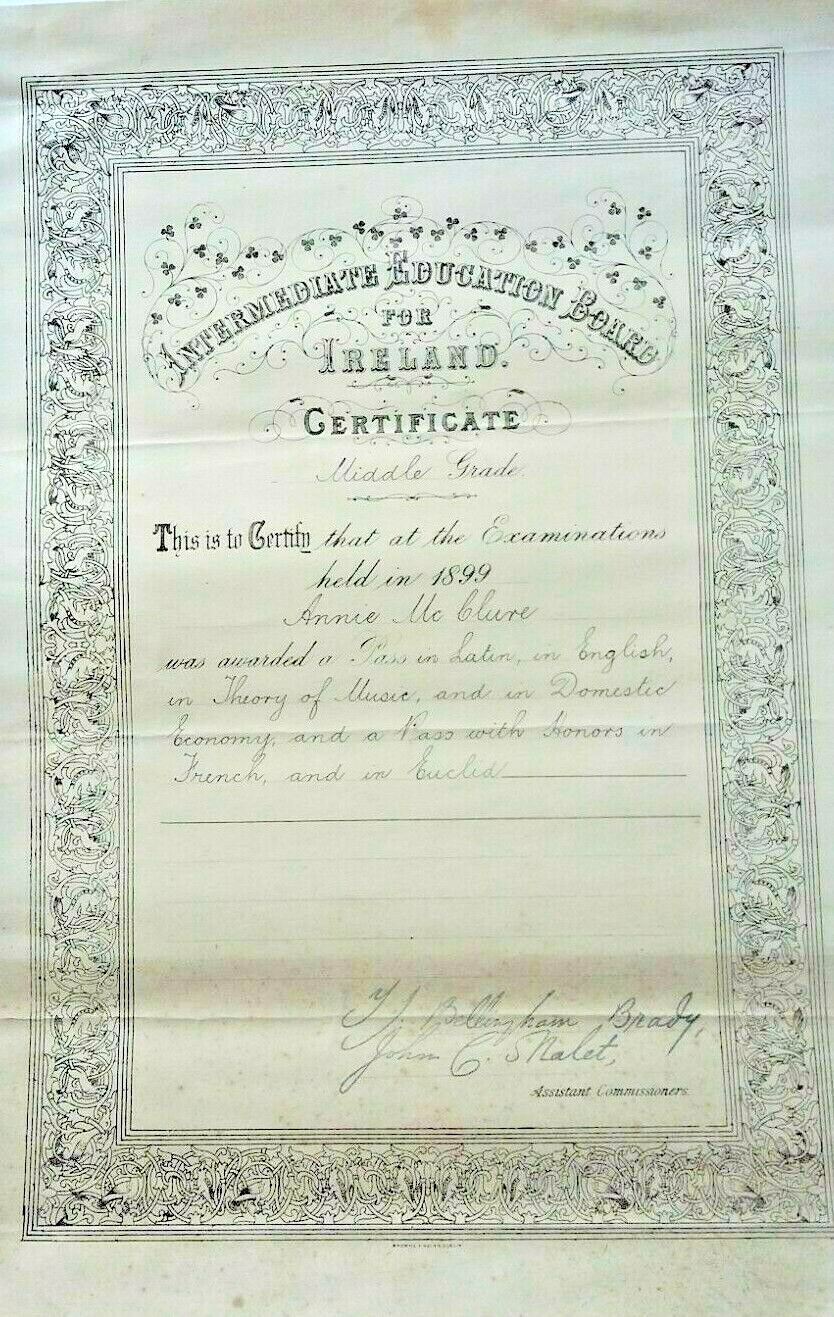 INTERMEDIATE EDUCATION BOARD
FOR
IRELAND.
CERTIFICATE
Middle Grade.
This is to Certify that at the Examinations
held in 1899
Annie Mc Clure
was awarded a Pass in Latin, in English,
in Theory of Music, and in Domestic
Economy, and a Pass with Honors in
French, and in Euclid
Bellingham Brady,
John C.
Assistant Commissioners.